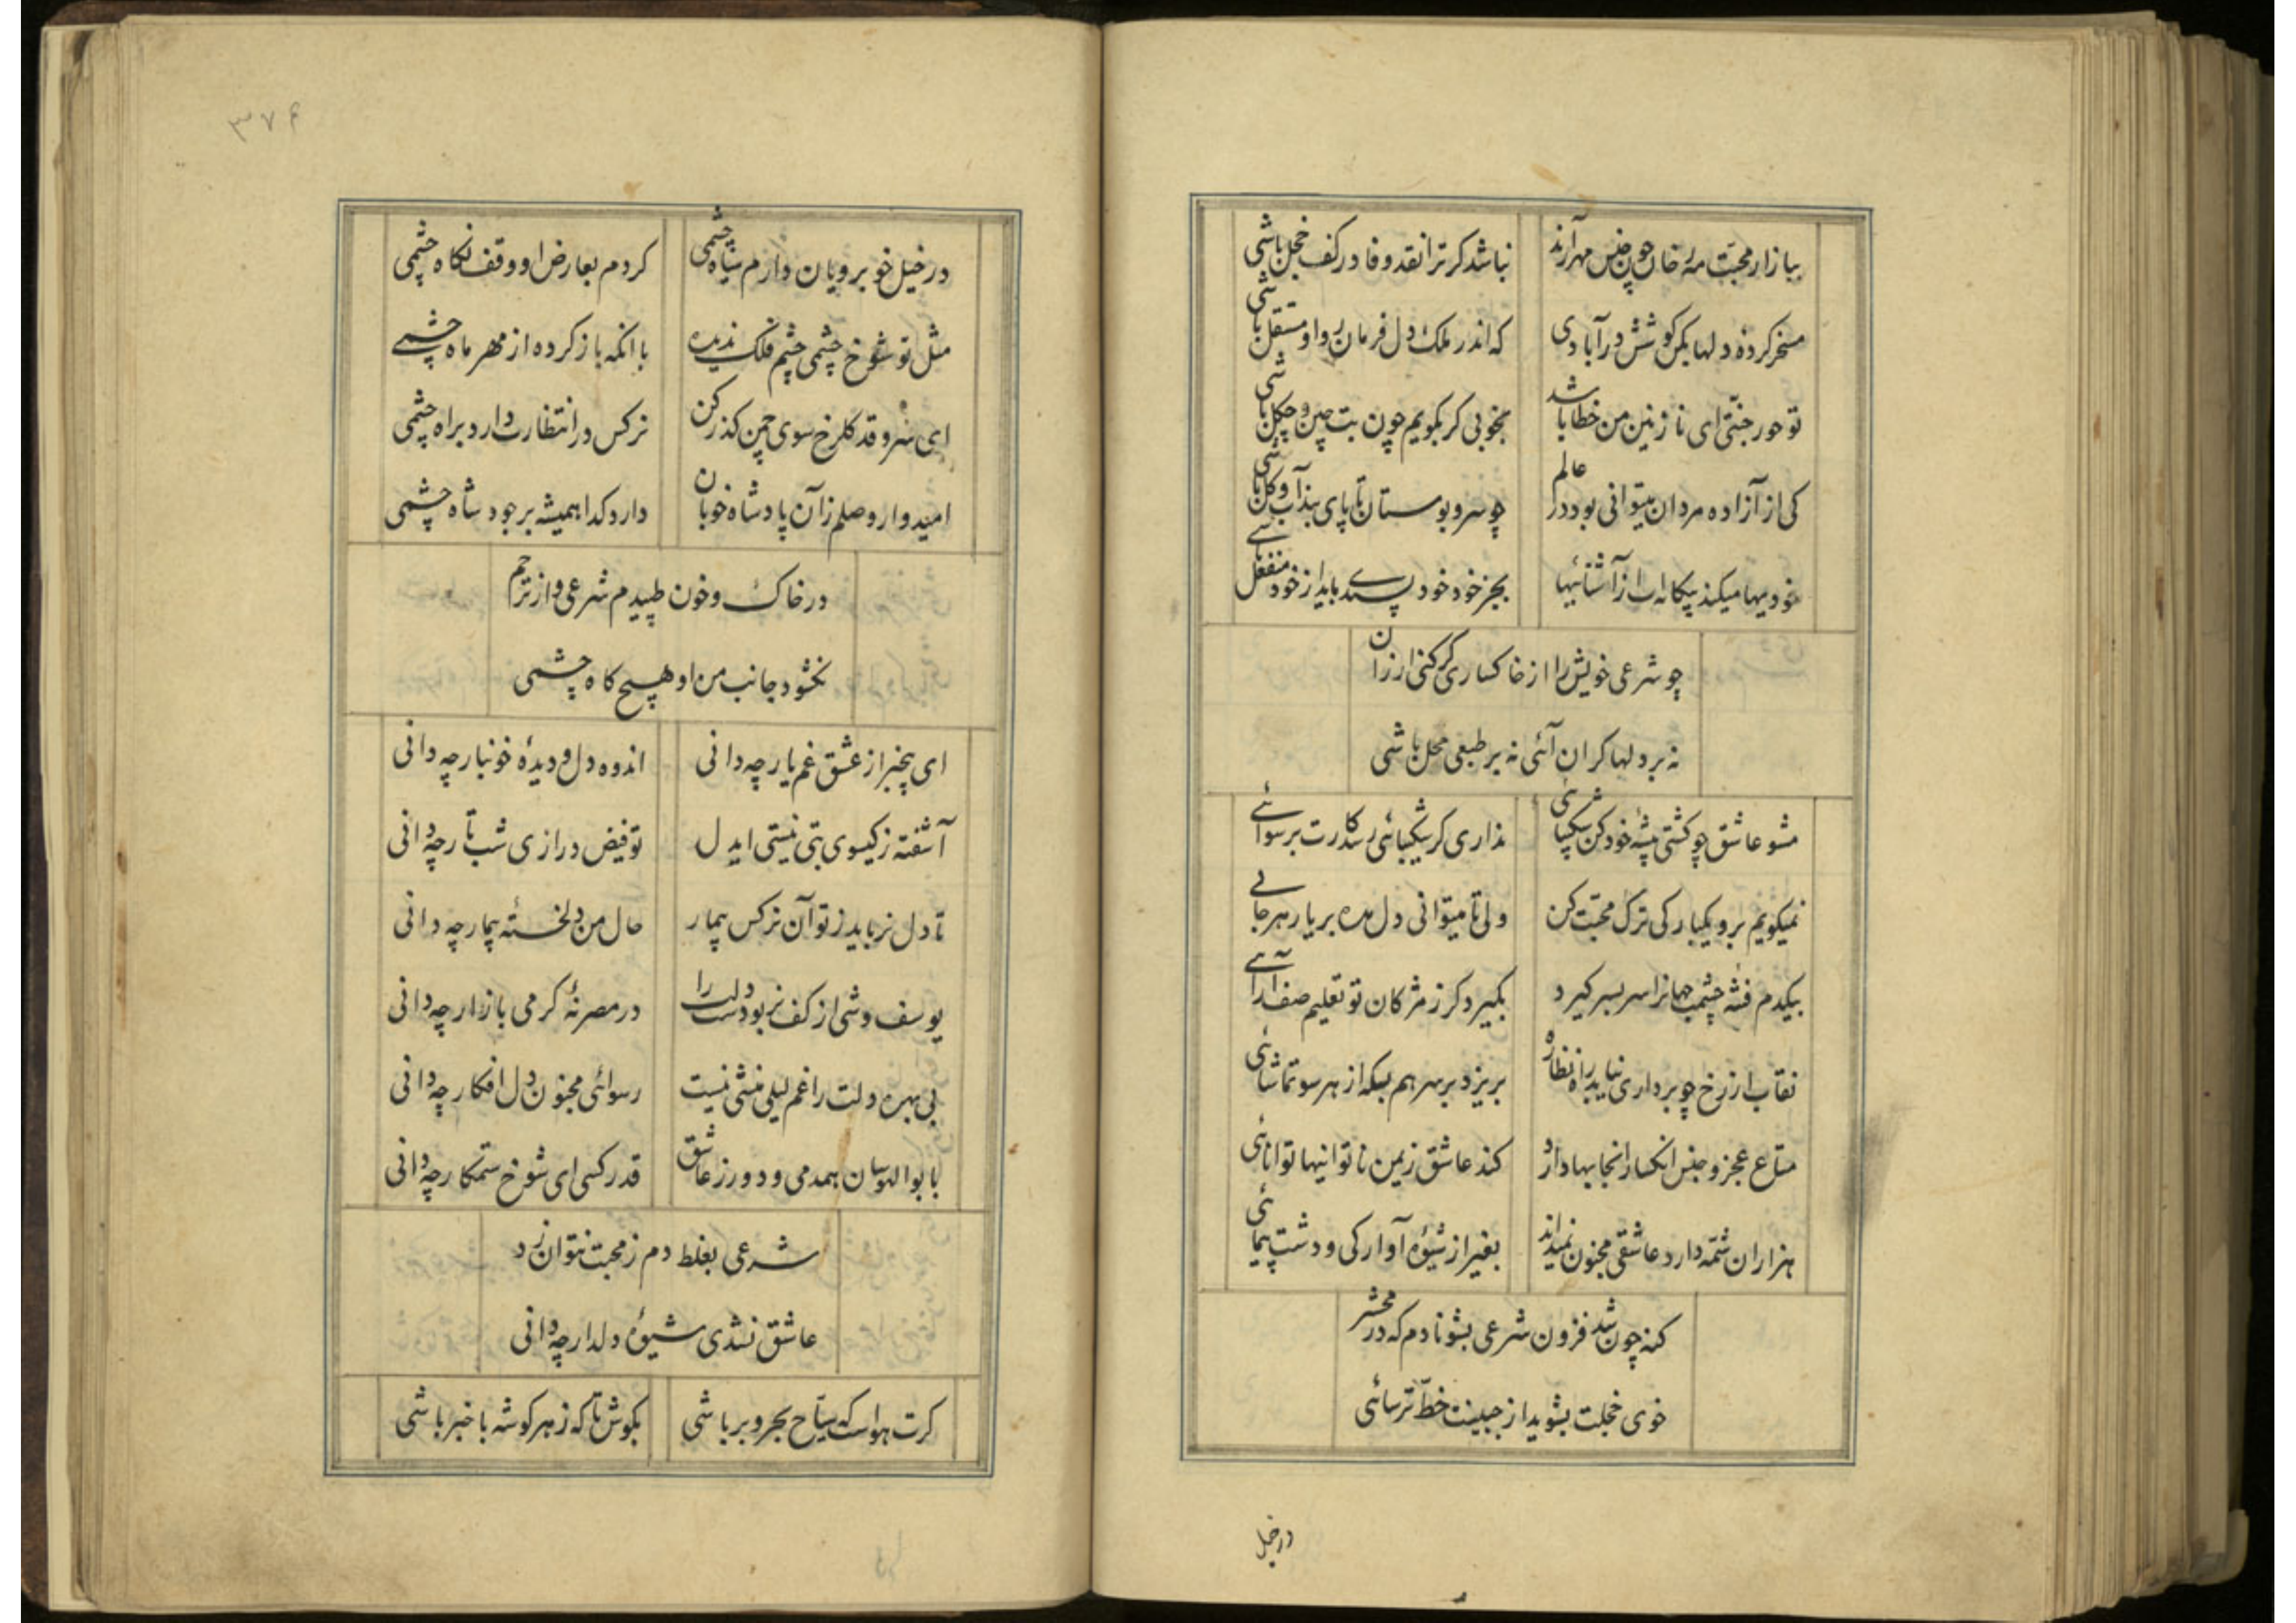 ببازار محبت مه رخان چون جنس مهر آرند نباشد کر ترا نقد وفا در کف خجل باشی
مسخر کردهٔ دلها بکن کوشش در آبادی که اندر ملک دل فرمان روا و مستقل باشی
تو حور جنتی ای نازنین من خطا باشد بخوبی کر بکویم چون بت چین و چکل باشی
کی از آزاده مردان میتوانی بود در عالم چو سرو بوستان تا پای بند آب و کل باشی
خودیها میکند بیکانه ات از آشنائیها بجز خود خود پسندے باید از خود منفعل باشے
چو شرعی خویش را از خاکساری کر کنی ارزان
نه بر دلها کران آئی نه بر طبعی محل باشی
مشو عاشق چو کشتی پیشهٔ خود کن شکیبائی نداری کر شکیبائی رسد کارت برسوائے
نمیکویم برو یکبارکی ترک محبت کن ولی تا میتوانی دل مده بر یار هر جائے
بیکدم فتنهٔ چشمت جهانرا سر بسر کیرد بکیرد کر ز مژکان تو تعلیم صف آرائے
نقاب از رخ چو برداری نیابد راه نظاره بریزد بر سر هم بسکه از هر سو تماشائی
متاع عجز و جنس انکسار انجا بها دارد کند عاشق زیمن ناتوانیها توانائی
هزاران شمه دارد عاشقی مجنون نمیداند بغیر از شیوهٔ آوارکی و دشت پیمائی
کنه چون شد فزون شرعی بشو نادم که در محشر
خوی خجلت بشوید از جبینت خط ترسائی
در خیل
۳۷۶
در خیل خوبرویان دارم سیاه چشمی کردم بعارض او وقف نکاه چشمی
مثل تو شوخ چشمی چشم فلک ندیده با انکه باز کرده از مهر ماه چشمے
ای سرو قد کلرخ سوی چمن کذر کن نرکس در انتظارت دارد براه چشمی
امیدوار وصلم زآن پادشاه خوبان دارد کدا همیشه بر جود شاه چشمی
در خاک و خون طپیدم شرعی و از ترحم
نکشود جانب من او هیچ کاه چشمی
ای بیخبر از عشق غم یار چه دانی اندوه دل و دیدهٔ خونبار چه دانی
آشفته ز کیسوی بتی نیستی ایدل توفیض درازی شب تار چه دانی
تا دل نرباید ز تو آن نرکس بیمار حال من دلخستهٔ بیمار چه دانی
یوسف وشی از کف نربودست دلت را در مصر نهٔ کرمی بازار چه دانی
بی بهره دلت را غم لیلی منشی نیست رسوائی مجنون دل افکار چه دانی
با بوالهوسان همدمی و دور ز عاشق قدر کسی ای شوخ ستمکار چه دانی
شرعی بغلط دم ز محبت نتوان زد
عاشق نشدی شیوهٔ دلدار چه دانی
کرت هواست که سیاح بحر و بر باشی بکوش تا که ز هر کوشه با خبر باشی